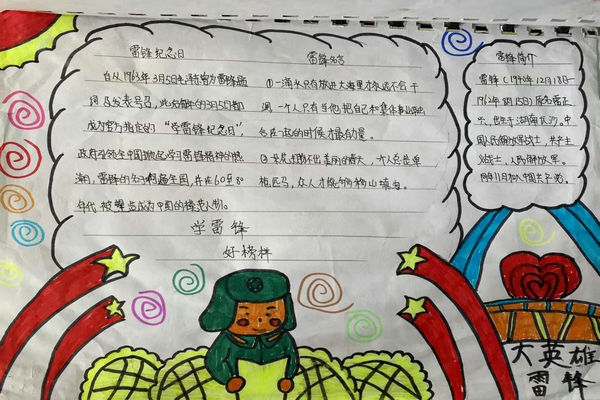 雷锋纪念日
自从1963年3月5日毛泽东为雷锋题
词及发表号召，此后每年的3月5日都
成为官方指定的“学雷锋纪念日”，
政府号领全中国掀起学习雷锋精神的热
潮，雷锋的名字遍全国，并在60至80
年代被塑造成为中国的模范人物。
雷锋名言
①一滴水只有放进大海里才永远不会干
涸，一个人只有当他把自己和集体事业融
合在一起的时候才最有力量。
②一朵鲜花打扮不出美丽的春天，一个人先进单
枪匹马，众人才能移山填海。
学雷锋
好榜样
雷锋简介
雷锋（1940年12月18日-
1962年8月15日）原名雷正
兴，出生于湖南长沙，中
国人民解放军战士，共产主
义战士，人民解放军。
月11日加入中国共产党。
大英雄
雷锋